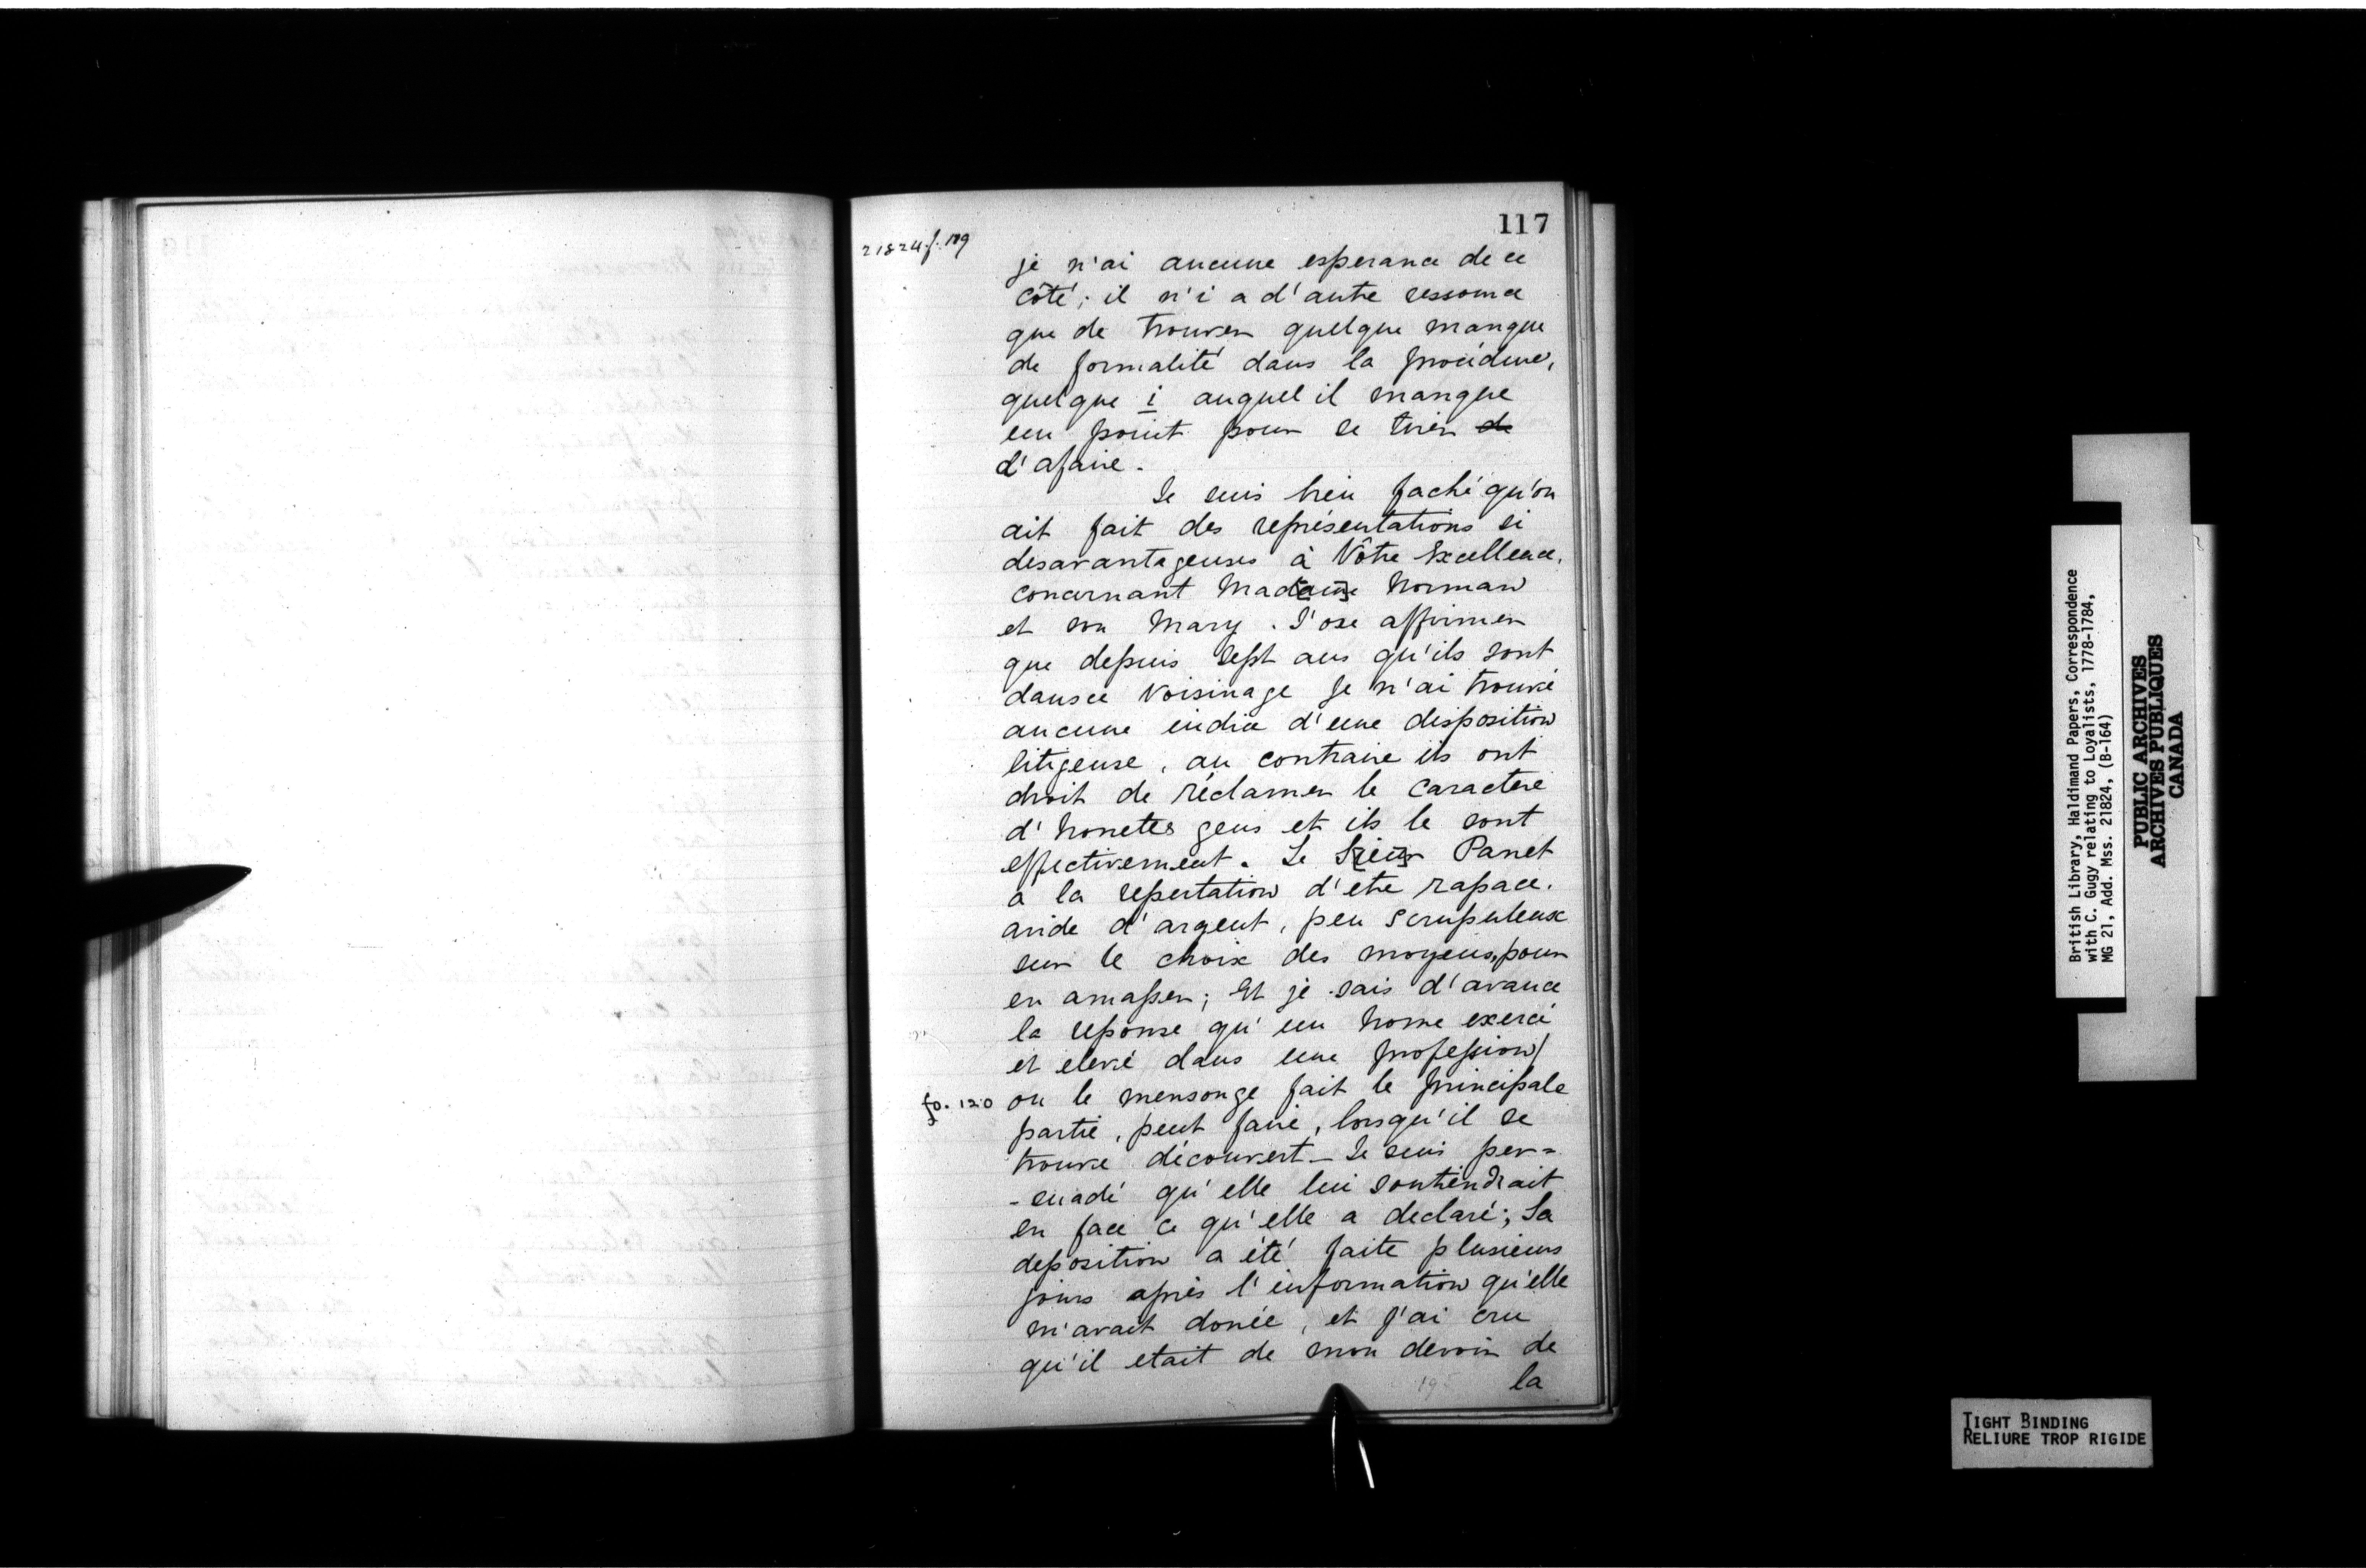 117
21824.f.119
je n'ai aucune esperance de ce
côté; il n'i a d'autre ressource
que de trouver quelque manque
de formalité dans la procédure,
quelque i auquel il manque
un point pour se tirer de
d'afaire.
Je suis bien faché qu'on
ait fait des représentations si
desavantageuses à Vôtre Excellence,
concernant Mad[am]e Norman
et son Mary. J'ose affirmer
que depuis Sept ans qu'ils sont
dans ce Voisinage Je n'ai trouvé
aucune indice d'une disposition
litigeuse, au contraire ils ont
droit de réclamer le caractere
d'honetes gens et ils le sont
effectivement. Le S[ieu]r Panet
a la reputation d'etre rapace.
avide d'argent, peu scrupuleux
sur le choix des moyens, pour
en amasser; Et je sais d'avance
la reponse qu'un home exercé
et elevé dans une profession/
fo. 120 ou le mensonge fait le principale
partie, peut faire, lorsqu'il se
trouve découvert_ Je suis per=
-suadé qu'elle lui soutiendrait
en face ce qu'elle a declaré; Sa
deposition a été faite plusieurs
jours après l'information qu'elle
m'avait donée, et j'ai cru
qu'il etait de mon devoir de
la
British Library, Haldimand Papers, Correspondence
with C. Gugy relating to Loyalists, 1778-1784,
MG 21, Add. Mss. 21824, (B-164)
PUBLIC ARCHIVES
ARCHIVES PUBLIQUES
CANADA
TIGHT BINDING
RELIURE TROP RIGIDE